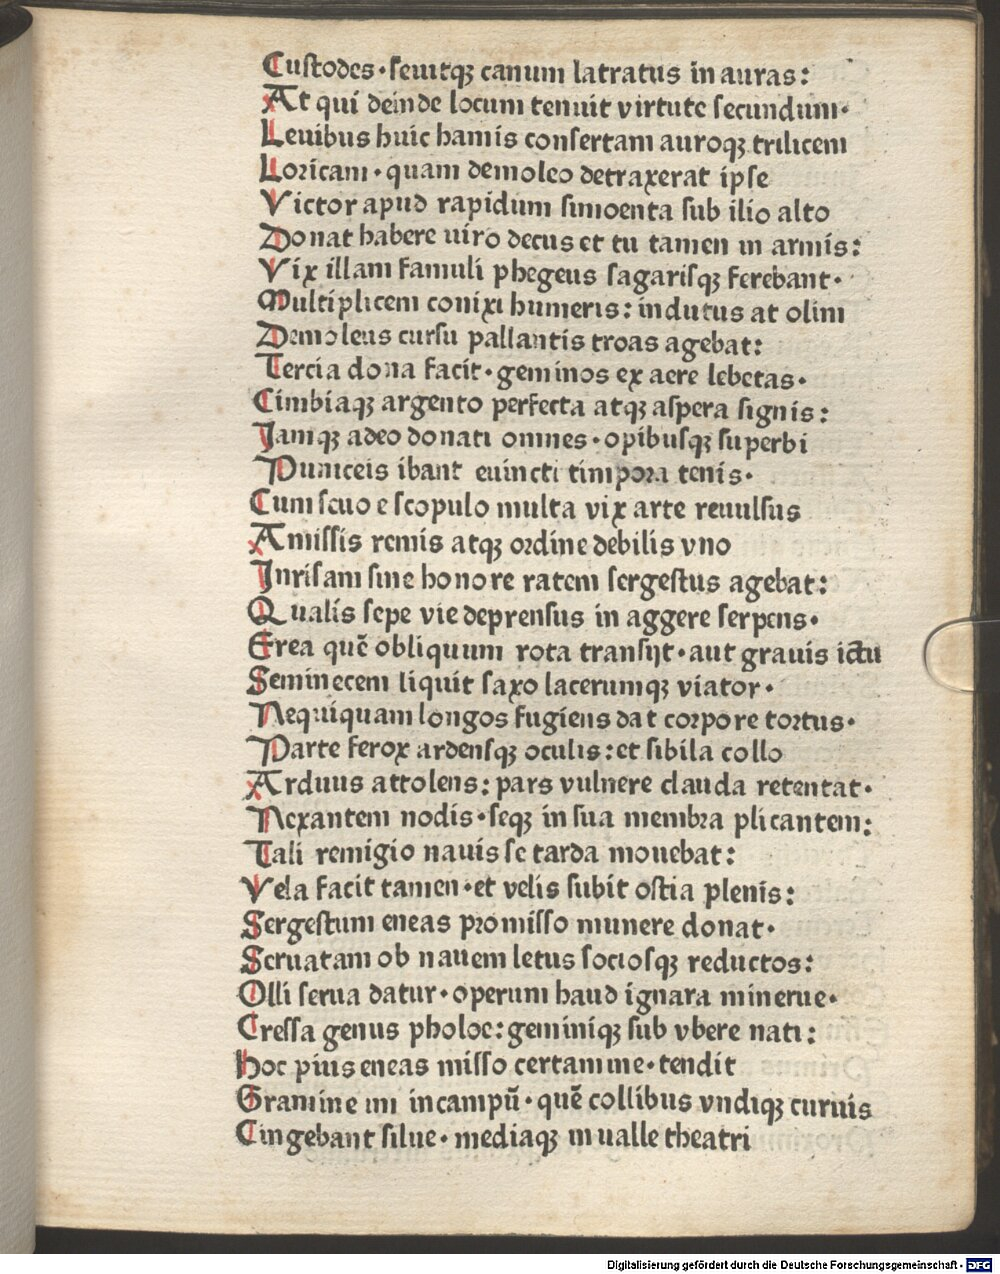 Custodes · seuitqꝫ canum latratus in auras:
At qui deinde locum tenuit virtute secundum·
Leuibus huic hamis consertam auroqꝫ trilicem
Loricam · quam demoleo detraxerat ipse
Victor apud rapidum simoenta sub ilio alto
Donat habere uiro decus et tu tamen in armis:
Vix illam famuli phegeus sagarisqꝫ ferebant·
Multiplicem conixi humeris: indutus at olim
Demoleus cursu pallantis troas agebat:
Tercia dona facit · geminos ex aere lebetas·
Cimbiaqꝫ argento perfecta atqꝫ aspera signis:
Jamqꝫ adeo donati omnes · opibusqꝫ superbi
Puniceis ibant euincti timpora tenis·
Cum scuo e scopulo multa vix arte reuulsus
Amissis remis atqꝫ ordine debilis vno
Inrisam sine honore ratem sergestus agebat:
Qualis sepe vie deprensus in aggere serpens·
Erea quē obliquum rota transijt · aut grauis ictu
Seminecem liquit saxo lacerumqꝫ viator·
Nequiquam longos fugiens dat corpore tortus·
Parte ferox ardensqꝫ oculis: et sibila collo
Arduus attolens: pars vulnere clauda retentat·
Nexantem nodis · seqꝫ in sua membra plicantem:
Tali remigio nauis se tarda mouebat:
Vela facit tamen · et velis subit ostia plenis:
Sergestum eneas promisso munere donat·
Seruatam ob nauem letus sociosqꝫ reductos:
Olli serua datur · operum haud ignara minerue·
Cressa genus pholoe: geminiqꝫ sub vbere nati:
Hoc pius eneas misso certamine · tendit
Gramine im incampū · quē collibus vndiqꝫ curuis
Cingebant silue · mediaqꝫ in ualle theatri
Digitalisierung gefördert durch die Deutsche Forschungsgemeinschaft - DFG